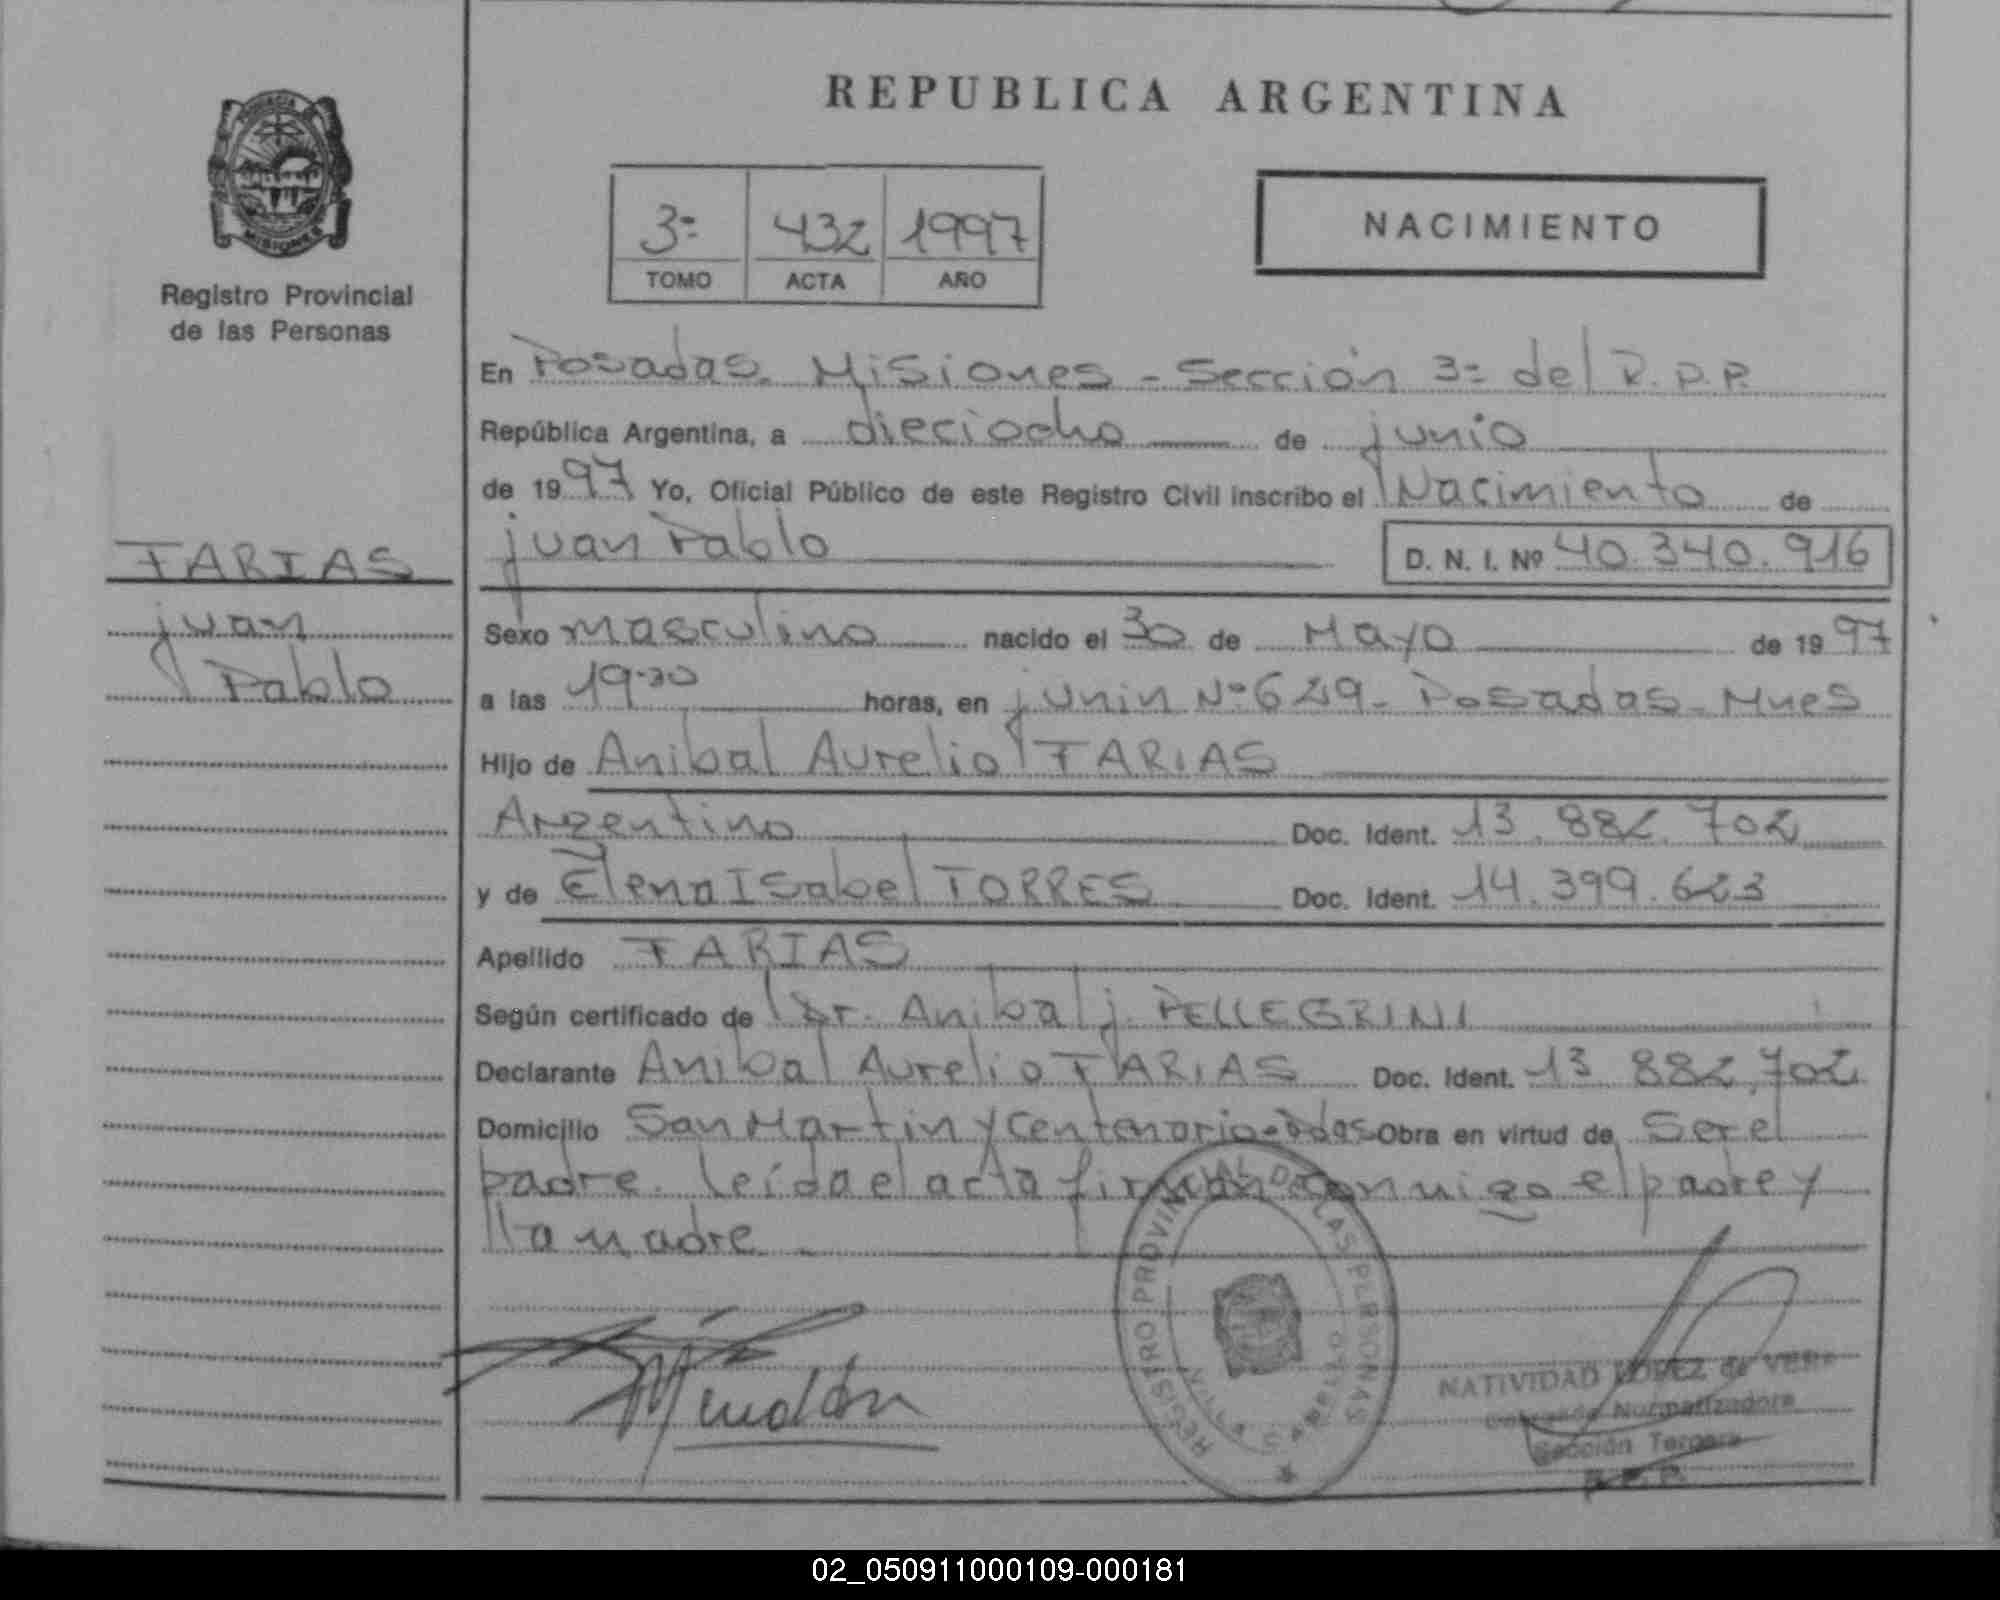 REPUBLICA ARGENTINA
MISIONES
Registro Provincial
de las Personas
3ª 432 1997
TOMO ACTA AÑO
NACIMIENTO
En Posadas. Misiones - Sección 3ª del R.P.P.
República Argentina, a dieciocho de junio
de 1997 Yo, Oficial Público de este Registro Civil inscribo el Nacimiento de
juan Pablo D. N. I. Nº 40.340.916
FARIAS
juan
Pablo
Sexo masculino nacido el 30 de Mayo de 1997
a las 19.30 horas, en junin Nº 629 - Posadas - Mnes
Hijo de Anibal Aurelio FARIAS
Argentino Doc. Ident. 13.882.702
y de Elena Isabel TORRES Doc. Ident. 14.399.623
Apellido FARIAS
Según certificado de Dr. Anibal j. PELLEGRINI
Declarante Anibal Aurelio FARIAS Doc. Ident. 13.882.702
Domicilio San Martin y Centenario - Pdas Obra en virtud de Ser el
padre. leída el acta firman conmigo el padre y
la madre.
REGISTRO PROVINCIAL DE LAS PERSONAS
NATIVIDAD LOPEZ de VERA
Normatizadora
Sección Tercera
R.P.P.
02_050911000109-000181